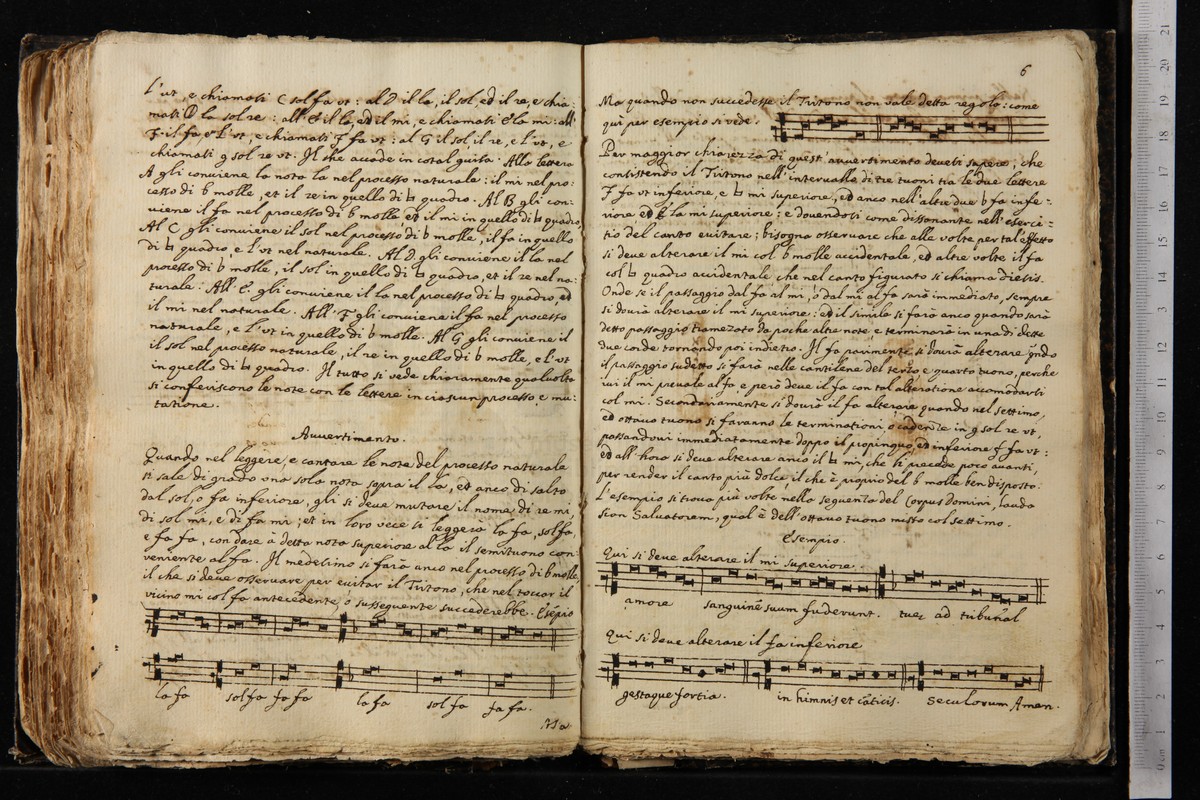 L'ut, e chiamati C sol fa ut: al D il la, il sol, ed il re, e chia:
mati D la sol re: all' E il la, ed il mi, e chiamati E la mi: all'
F. il fa e l'ut, e chiamati F fa ut: al G il sol, il re, e l'ut, e
chiamati g sol re ut. Il che accade in cotal guisa. Alla lettera
A gli conviene la nota la nel processo naturale: il mi nel pro:
cesso di b molle, et il re in quello di ♮ quadro. Al B gli con:
viene il fa nel processo di b molle, et il mi in quello di ♮ quadro,
Al C gli conviene il sol nel processo di b molle, il fa in quello
di ♮ quadro, e l'ut nel naturale. Al D gli conviene il la nel
processo di b molle, il sol in quello di ♮ quadro, et il re nel na:
turale: All' E gli conviene il la nel processo di ♮ quadro, ed
il mi nel naturale. All' F gli conviene il fa nel processo
naturale, e l'ut in quello di b molle. Al G gli conviene il
il sol nel processo naturale, il re in quello di b molle, e l'ut
in quello di ♮ quadro. Il tutto si vede chiaramente qualvolta
si conferiscono le note con le lettere in ciascun processo e mu:
tatione.
Avvertimento.
Quando nel leggere, e cantare le note del processo naturale
si sale di grado una sola nota sopra il la, et anco di salto
dal sol, o fa inferiore, gli si deve mutare il nome di re mi,
di sol mi, e di fa mi; et in loro vece si leggerà la fa, sol fa,
e fa fa, con dare à detta nota superiore al la il semituono con:
veniente al fa. Il medesimo si farà anco nel processo di b molle,
il che si deve osservare per evitar il Tritono, che nel toccar il
vicino mi col fa antecedente, o susseguente succederebbe. Esēpio
la fa sol fa fa fa la fa sol fa fa fa.
Ma
6
Ma quando non succedesse il Tritono non vale detta regola: come
quì per esempio si vede.
Per maggior chiarezza di quest' avvertimento devesi sapere, che
consistendo il Tritono nell' intervallo di tre tuoni tra le due lettere
F fa ut inferiore, e ♮ mi superiore, ed anco nell' altre due b fa infe:
riore ed E la mi superiore: e dovendosi come dissonante nell' eserci:
tio del canto evitare; bisogna osservare che alle volte per tal' effetto
si deve alterare il mi col b molle accidentale, et altre volte il fa
col ♮ quadro accidentale che nel canto figurato si chiama diesis.
Onde se il passaggio dal fa al mi, ò dal mi al fa sarà immediato, sempre
si dovrà alterare il mi superiore: ed il simile si farà anco quando sarà
detto passaggio tramezato da poche altre note e terminarà in una di dette
due corde tornando poi indietro. Il fa parimente si dovrà alterare qndo
il passaggio sudetto si farà nelle cantilene del terzo e quarto tuono, perche
ivi il mi prevale al fa e però deve il fa con tal alteratione accomodarsi
col mi. Secondariamente si dovrà il fa alterare quando nel settimo,
ed ottavo tuono si faranno le terminationi, o cadenze in g sol re ut,
passandovi immediatamente doppo il propinquo, ed inferiore F fa ut:
ed all' hora si deve alterare anco il ♮ mi, che li precede poco avanti,
per render il canto più dolce il che è proprio del b molle ben disposto.
L'esempio si trova più volte nella sequenza del Corpus Domini, Lauda
Sion Salvatorem, qual è dell' ottavo tuono misto col settimo.
Esempio.
Qui si deve alterare il mi superiore.
amore sanguinē suum fuderunt. tuez ad tribunal
Qui si deve alterare il fa inferiore
gestaque fortia. in himnis et cāticis. Seculorum Amen.